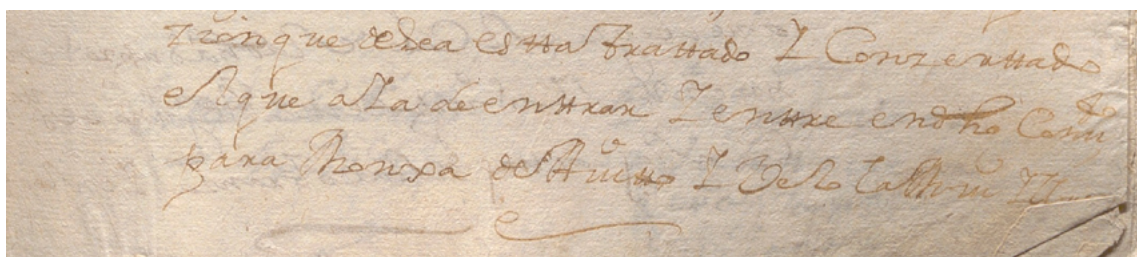 zion que desea esta trattado Y Conzerttado
es que aYa de enttrar Y enttre en dho Conu^to
para Monxa de Auitto Y Velo